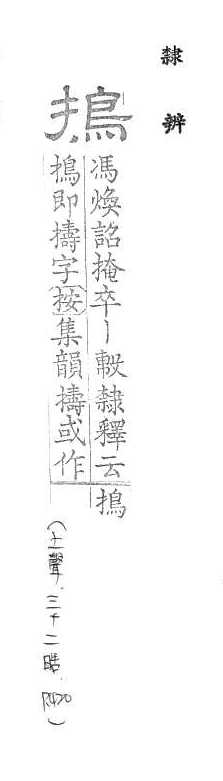 隸辨
搗
馮煥詔掩卒丨㪣隸釋云搗
搗即擣字按集韻擣或作
(上聲.三十二皓.P.420)